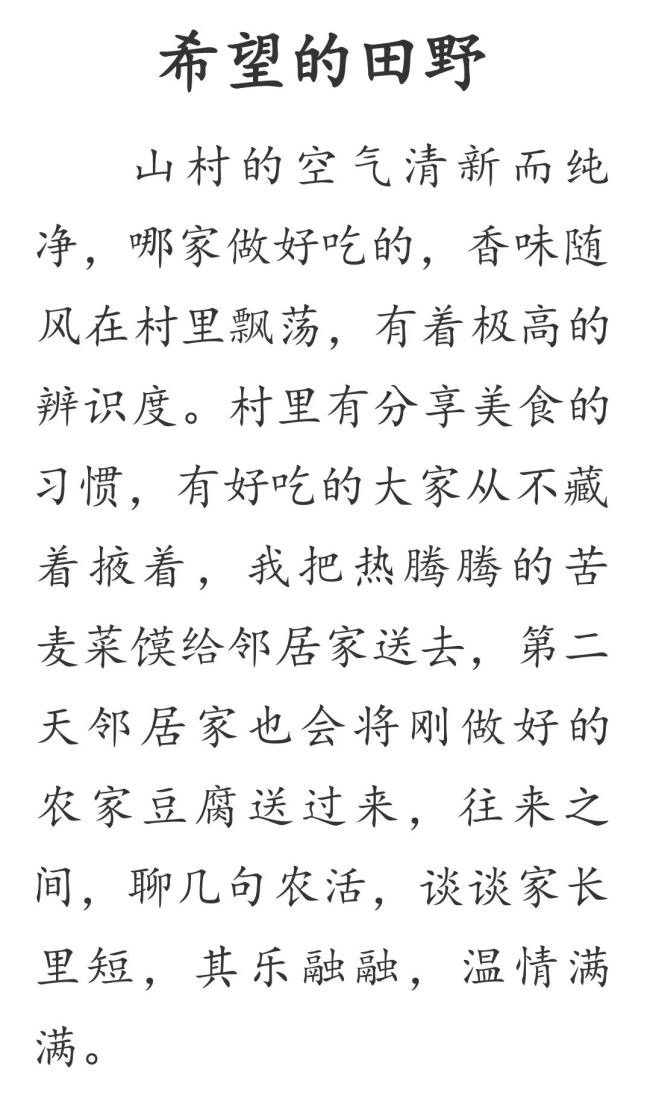 希望的田野
山村的空气清新而纯
净，哪家做好吃的，香味随
风在村里飘荡，有着极高的
辨识度。村里有分享美食的
习惯，有好吃的大家从不藏
着掖着，我把热腾腾的苦
麦菜馍给邻居家送去，第二
天邻居家也会将刚做好的
农家豆腐送过来，往来之
间，聊几句农活，谈谈家长
里短，其乐融融，温情满
满。